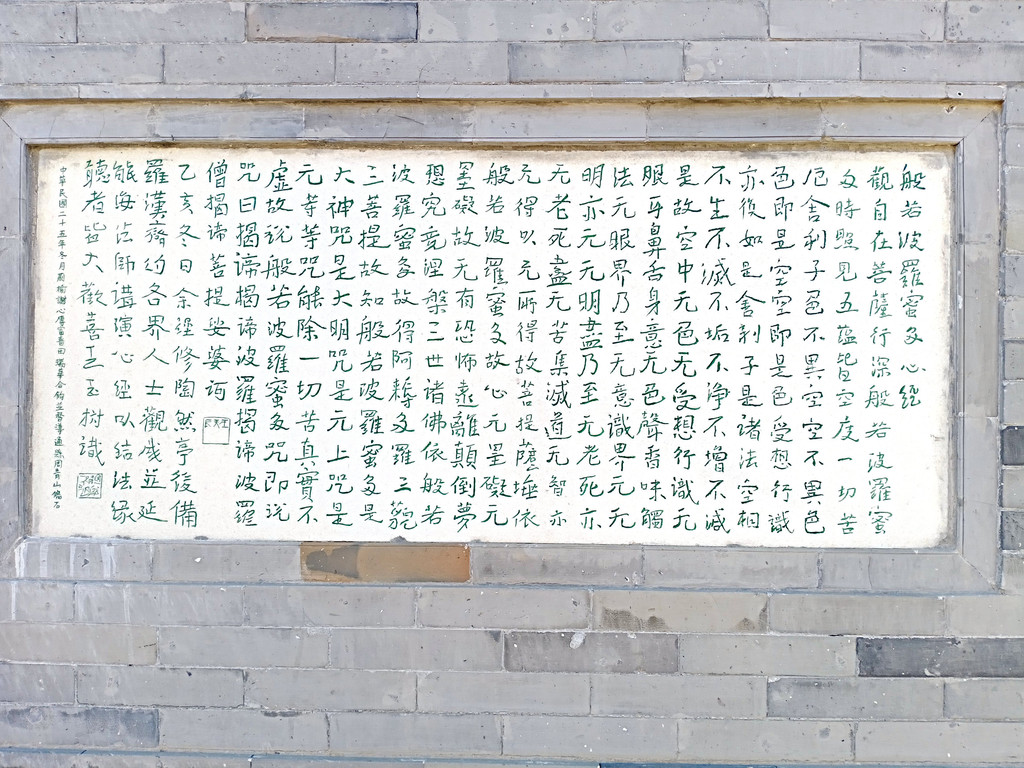 般若波羅蜜多心經
觀自在菩薩行深般若波羅蜜
多時照見五蘊皆空度一切苦
厄舍利子色不異空空不異色
色即是空空即是色受想行識
亦復如是舍利子是諸法空相
不生不滅不垢不淨不增不減
是故空中无色无受想行識无
眼耳鼻舌身意无色聲香味觸
法无眼界乃至无意識界无无
明亦无无明盡乃至无老死亦
无老死盡无苦集滅道无智亦
无得以无所得故菩提薩埵依
般若波羅蜜多故心无罣礙无
罣礙故无有恐怖遠離顛倒夢
想究竟涅槃三世諸佛依般若
波羅蜜多故得阿耨多羅三藐
三菩提故知般若波羅蜜多是
大神咒是大明咒是无上咒是
无等等咒能除一切苦真實不
虛故說般若波羅蜜多咒即說
咒曰揭諦揭諦波羅揭諦波羅
僧揭諦菩提娑婆訶
乙亥冬日余經修陶然亭後備
羅漢齋約各界人士觀成並延
能海法師講演心經以結法緣
聽者皆大歡喜王玉樹識
中華民國二十五年冬月